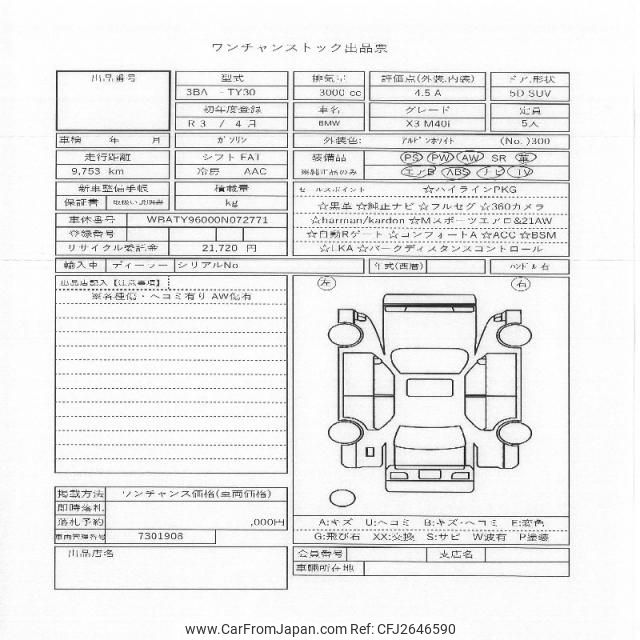 ワンチャンストック出品票
出品番号 型式 排気量 評価点(外装,内装) ドア,形状
3BA - TY30 3000 cc 4.5 A 5D SUV
初年度登録 車名 グレード 定員
R 3 / 4 月 BMW X3 M40i 5人
車検 年 月 ガソリン 外装色: アルピンホワイト (No. )300
走行距離 シフト FAT 装備品 PS PW AW SR 革
9,753 km 冷房 AAC ※純正品のみ エアB ABS ナビ TV
新車整備手帳 積載量 セールスポイント ☆ハイラインPKG
保証書 取扱い説明書 kg ☆黒革 ☆純正ナビ ☆フルセグ ☆360カメラ
車体番号 WBATY96000N072771 ☆harman/kardon ☆Mスポーツエアロ&21AW
登録番号 ☆自動Rゲート ☆コンフォートA ☆ACC ☆BSM
リサイクル委託金 21,720 円 ☆LKA ☆パークディスタンスコントロール
輸入車 ディーラー シリアルNo 年式(西暦) ハンドル 右
出品店記入【注意事項】 左 右
※各種傷・ヘコミ有り AW傷有
掲載方法 ワンチャンス価格(車両価格)
即時落札
落札予約 ,000円 A:キズ U:ヘコミ B:キズ・ヘコミ F:変色
車両管理番号 7301908 G:飛び石 XX:交換 S:サビ W波有 P塗装
出品店名 会員番号 支店名
車輌所在地
www.CarFromJapan.com Ref: CFJ2646590